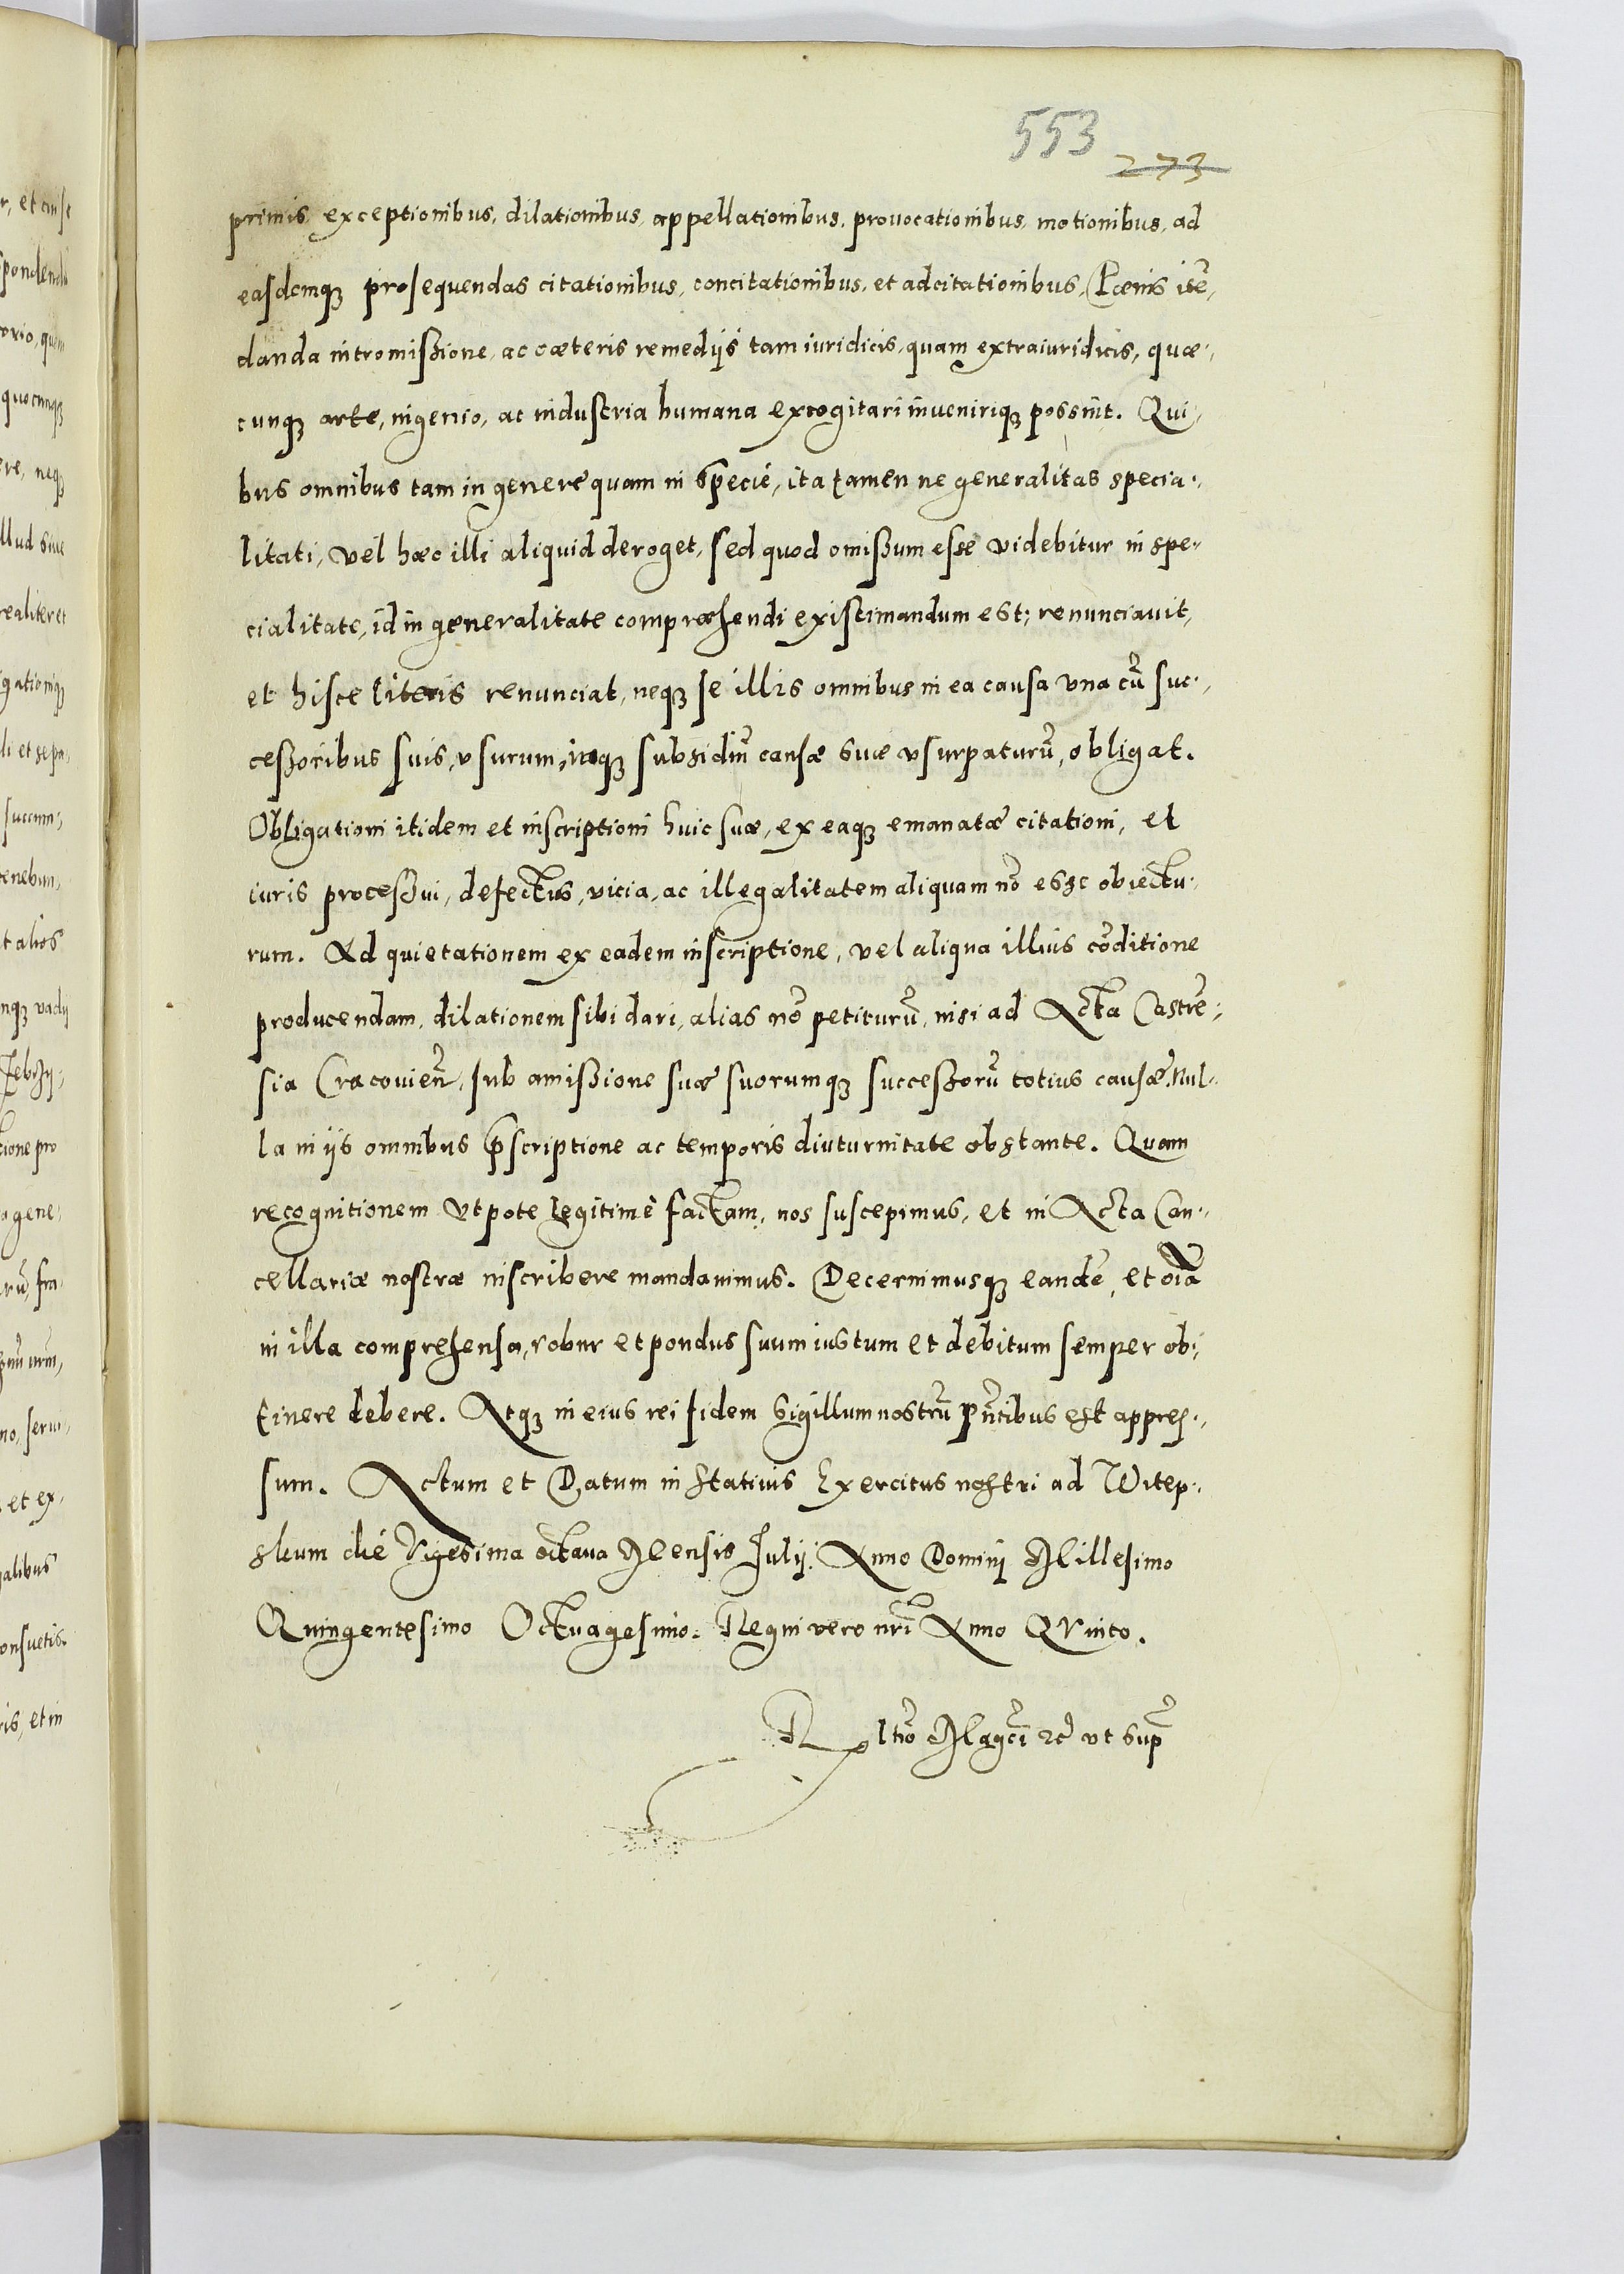 553
273
primis, exceptionibus, dilationibus, appellationibus, provocationibus, motionibus, ad
easdemqꝫ prosequendas citationibus, concitationibus, et adcitationibus, Pœnis itẽ,
danda intromißione, ac cæteris remedijs tam iuridicis, quam extraiuridicis, quæ,
cunqꝫ arte, ingenio, ac industria humana excogitari inuenirique possint. Qui,
bus omnibus tam in genere quam in specie, ita tamen ne generalitas specia,
litati, vel hæc illi aliquid deroget, sed quod omißum esse videbitur in spe,
cialitate, id in generalitate compræhendi existimandum est; renunciauit,
et hisce literis renunciat, neqꝫ se illis omnibus in ea causa vna cũ suc,
ceßoribus suis, vsurum, neqꝫ subsidiũ causæ suæ vsurpaturũ, obligat.
Obligationi itidem et inscriptioni huic suæ, ex eaqꝫ emanatæ citationi, et
iuris proceßui, defectus, vicia, ac illegalitatem aliquam nõ esse obiectu,
rum. Ad quietationem ex eadem inscriptione, vel aliqua illius cõditione
producendam, dilationem sibi dari, alias nõ petiturũ, nisi ad Acta Castrẽ,
sia Cracovieñ, sub amißione suæ suorumqꝫ succeßorũ totius causæ. Nul,
la in ijs omnibus p̃scriptione ac temporis diuturnitate obstante. Quam
recognitionem vtpote legitimè factam, nos suscepimus, et in Acta Can,
cellariæ nostræ inscribere mandauimus. Decernimusqꝫ eandẽ, et oĩa
in illa comprehensa, robur et pondus suum iustum et debitum semper ob,
tinere debere. Atqꝫ in eius rei fidem Sigillum nostrũ pñtibus est appres,
sum. Actum et Datum in Statiuis Exercitus nostri ad Witep,
scum die Vigesima octaua Mensis Julij. Anno Domini Millesimo
Quingentesimo Octuagesimo. Regni vero nri Anno Quinto.
Rltio Magci ꝛc̃ vt sup